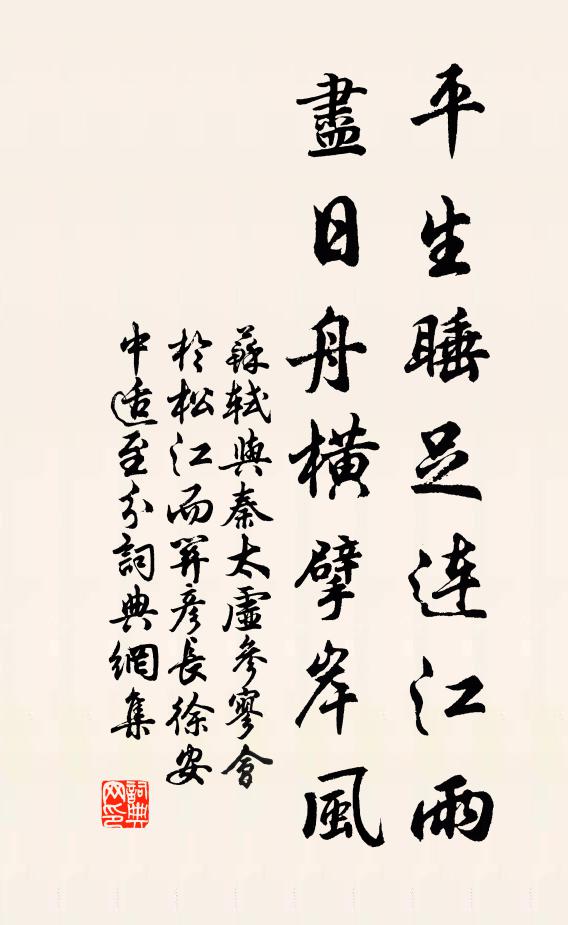 平生睡足連江雨
盡日舟橫擘岸風
蘇軾與秦太虛參寥會
於松江而關彥長徐安
中適至分詞典網集
詞典
网印